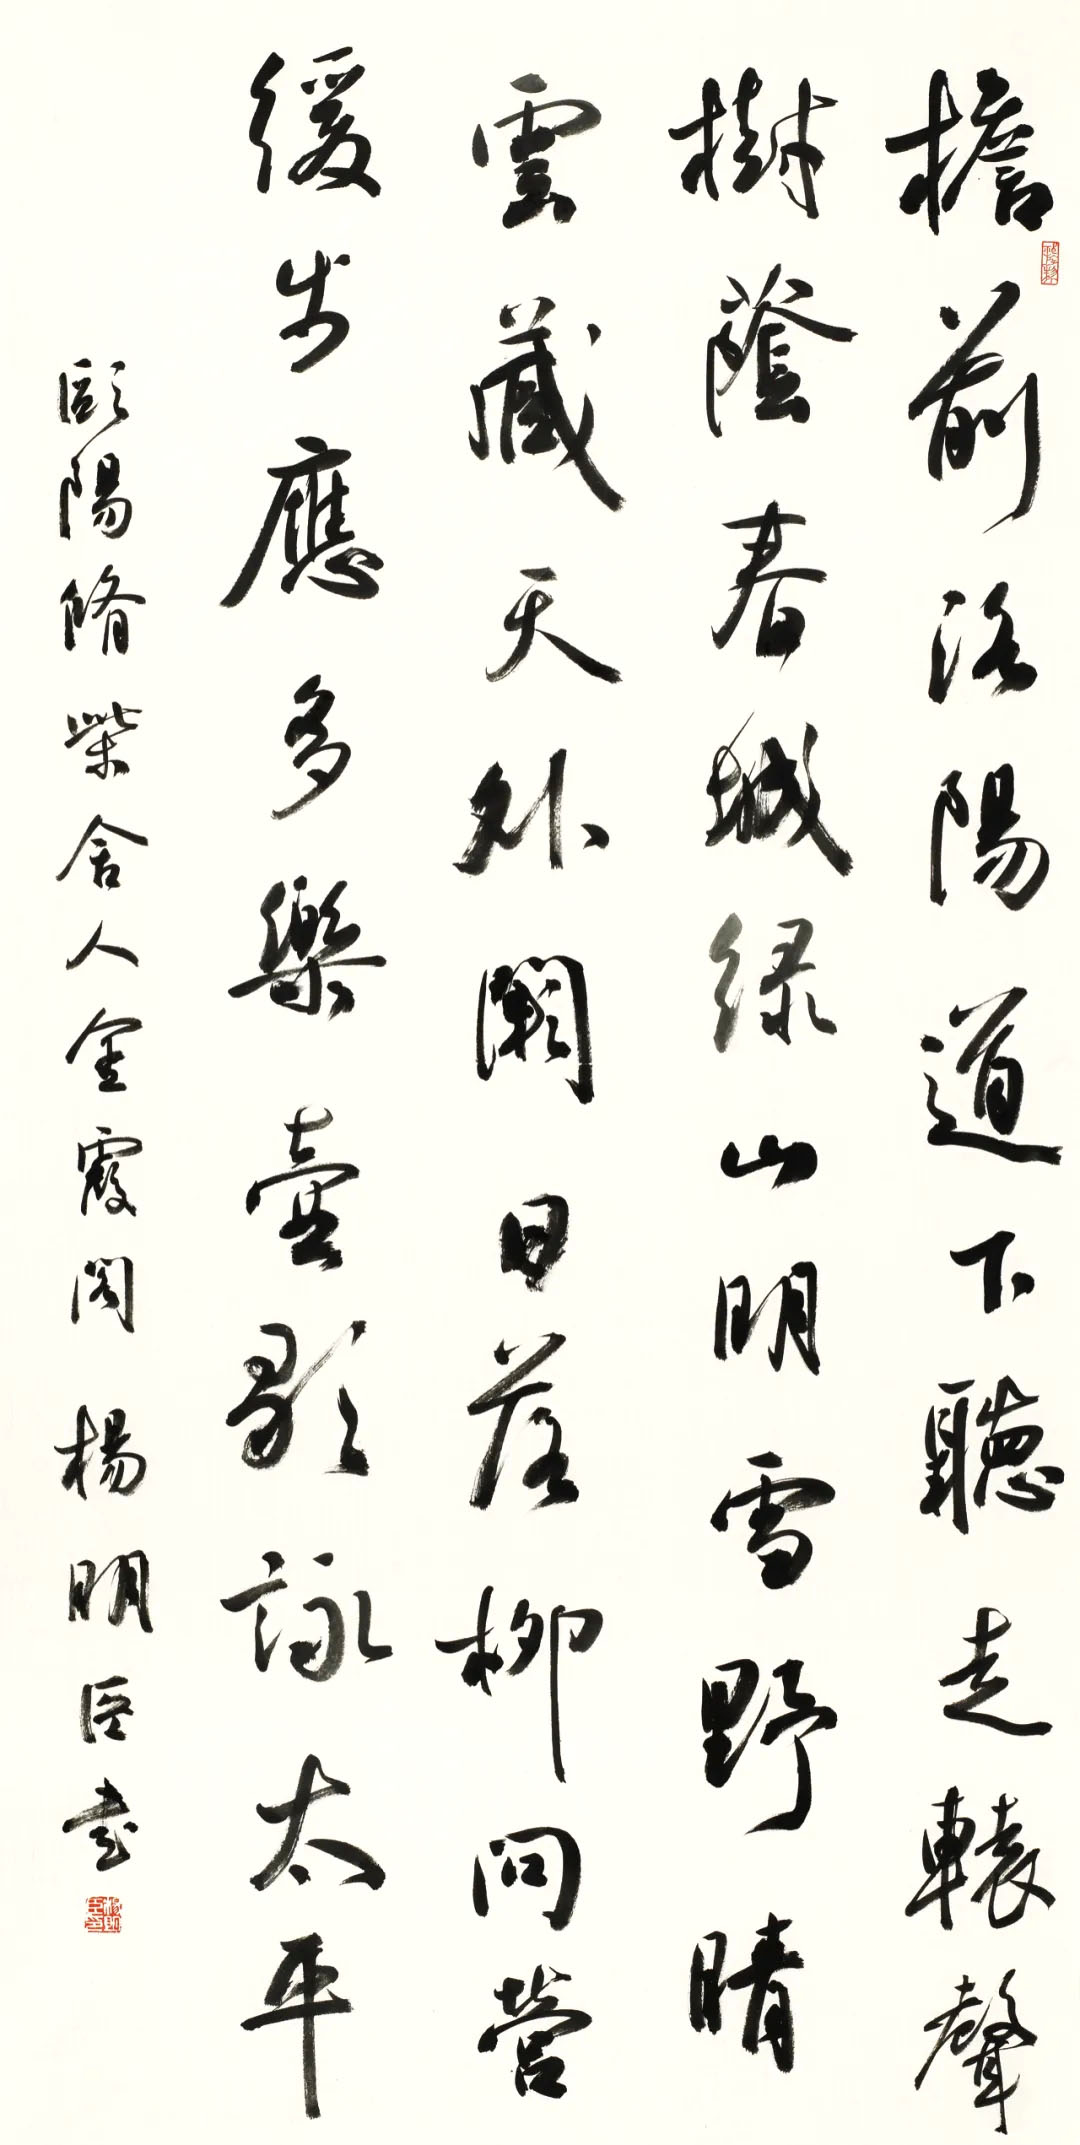 檐前洛陽道下聽走轅聲
樹蔭春城緑山明雪野晴
雲藏天外闕日落柳間營
緩步應多樂壺歌詠太平
歐陽脩柴舍人金霞閣 楊明臣書